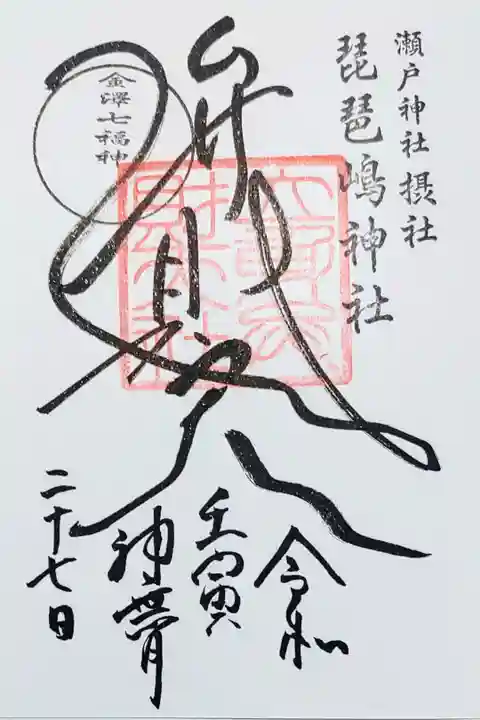 瀬戸神社 摂社
琵琶嶋神社
弁財天
金澤七福神
令和
壬寅
神無月
二十七日